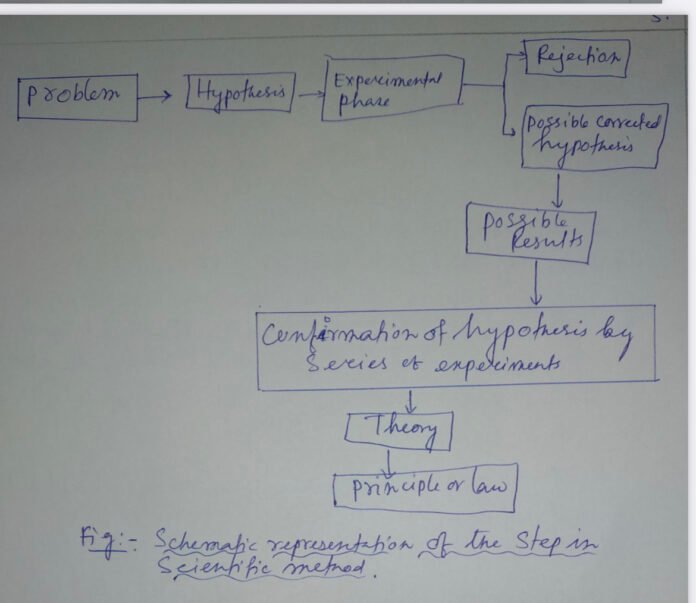 Problem
Hypothesis
Experimental
phase
Rejection
possible corrected
hypothesis
possible
Results
Confirmation of hypothesis by
Series of experiments
Theory
principle or law
Fig:- Schematic representation of the Step in
Scientific method.